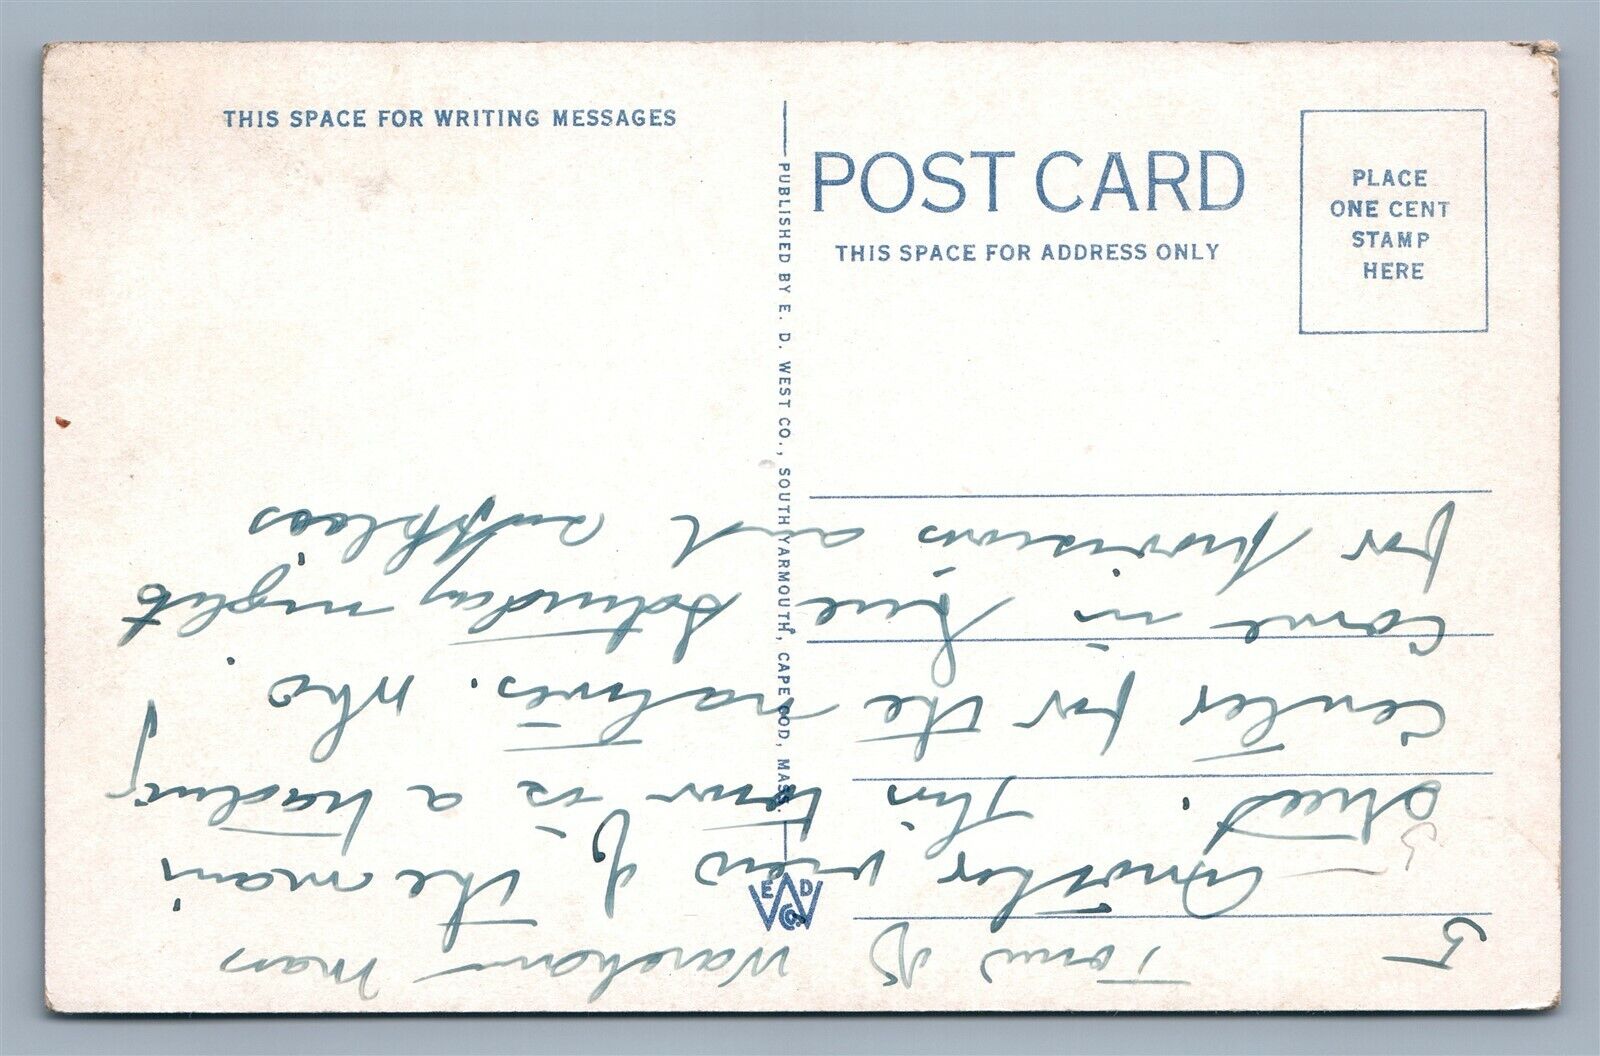 THIS SPACE FOR WRITING MESSAGES
POST CARD
THIS SPACE FOR ADDRESS ONLY
PLACE
ONE CENT
STAMP
HERE
PUBLISHED BY E. D. WEST CO., SOUTH YARMOUTH, CAPE COD, MASS.
E D
W
Co.
5 Town of Wareham Mass
Another view of the main
Street. This town is a trading
Center for the natives. Who
come in here Saturday night
for provisions and